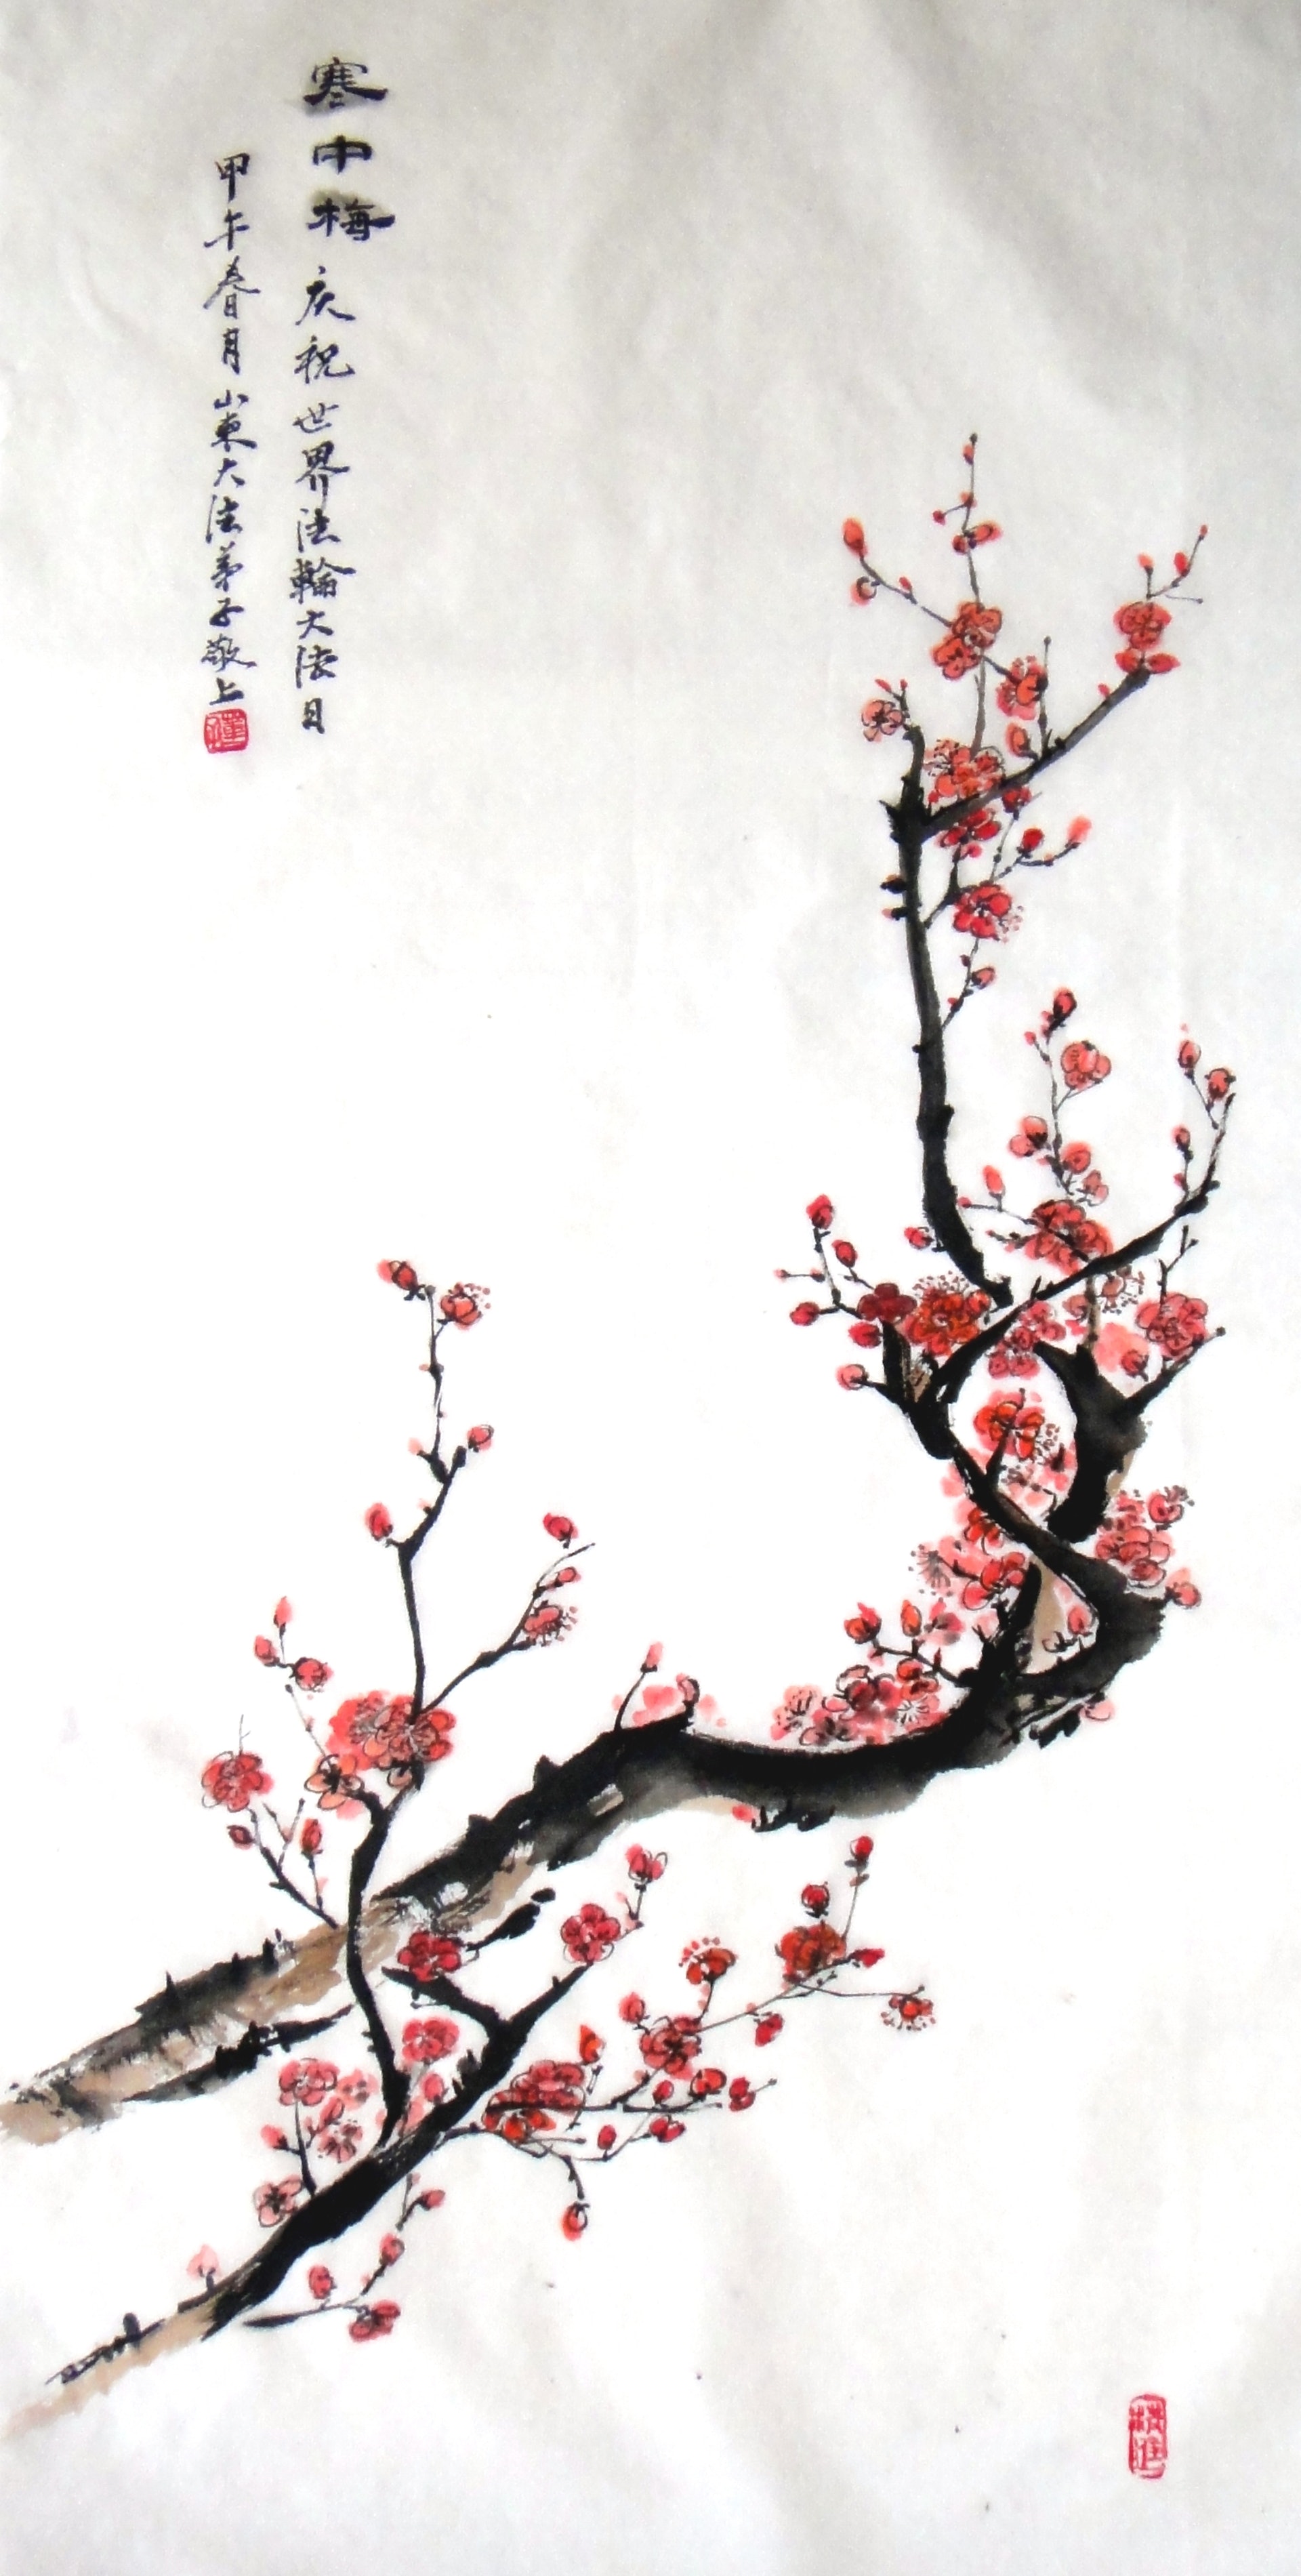 寒中梅 庆祝世界法輪大法日
甲午春月山東大法弟子敬上
精進